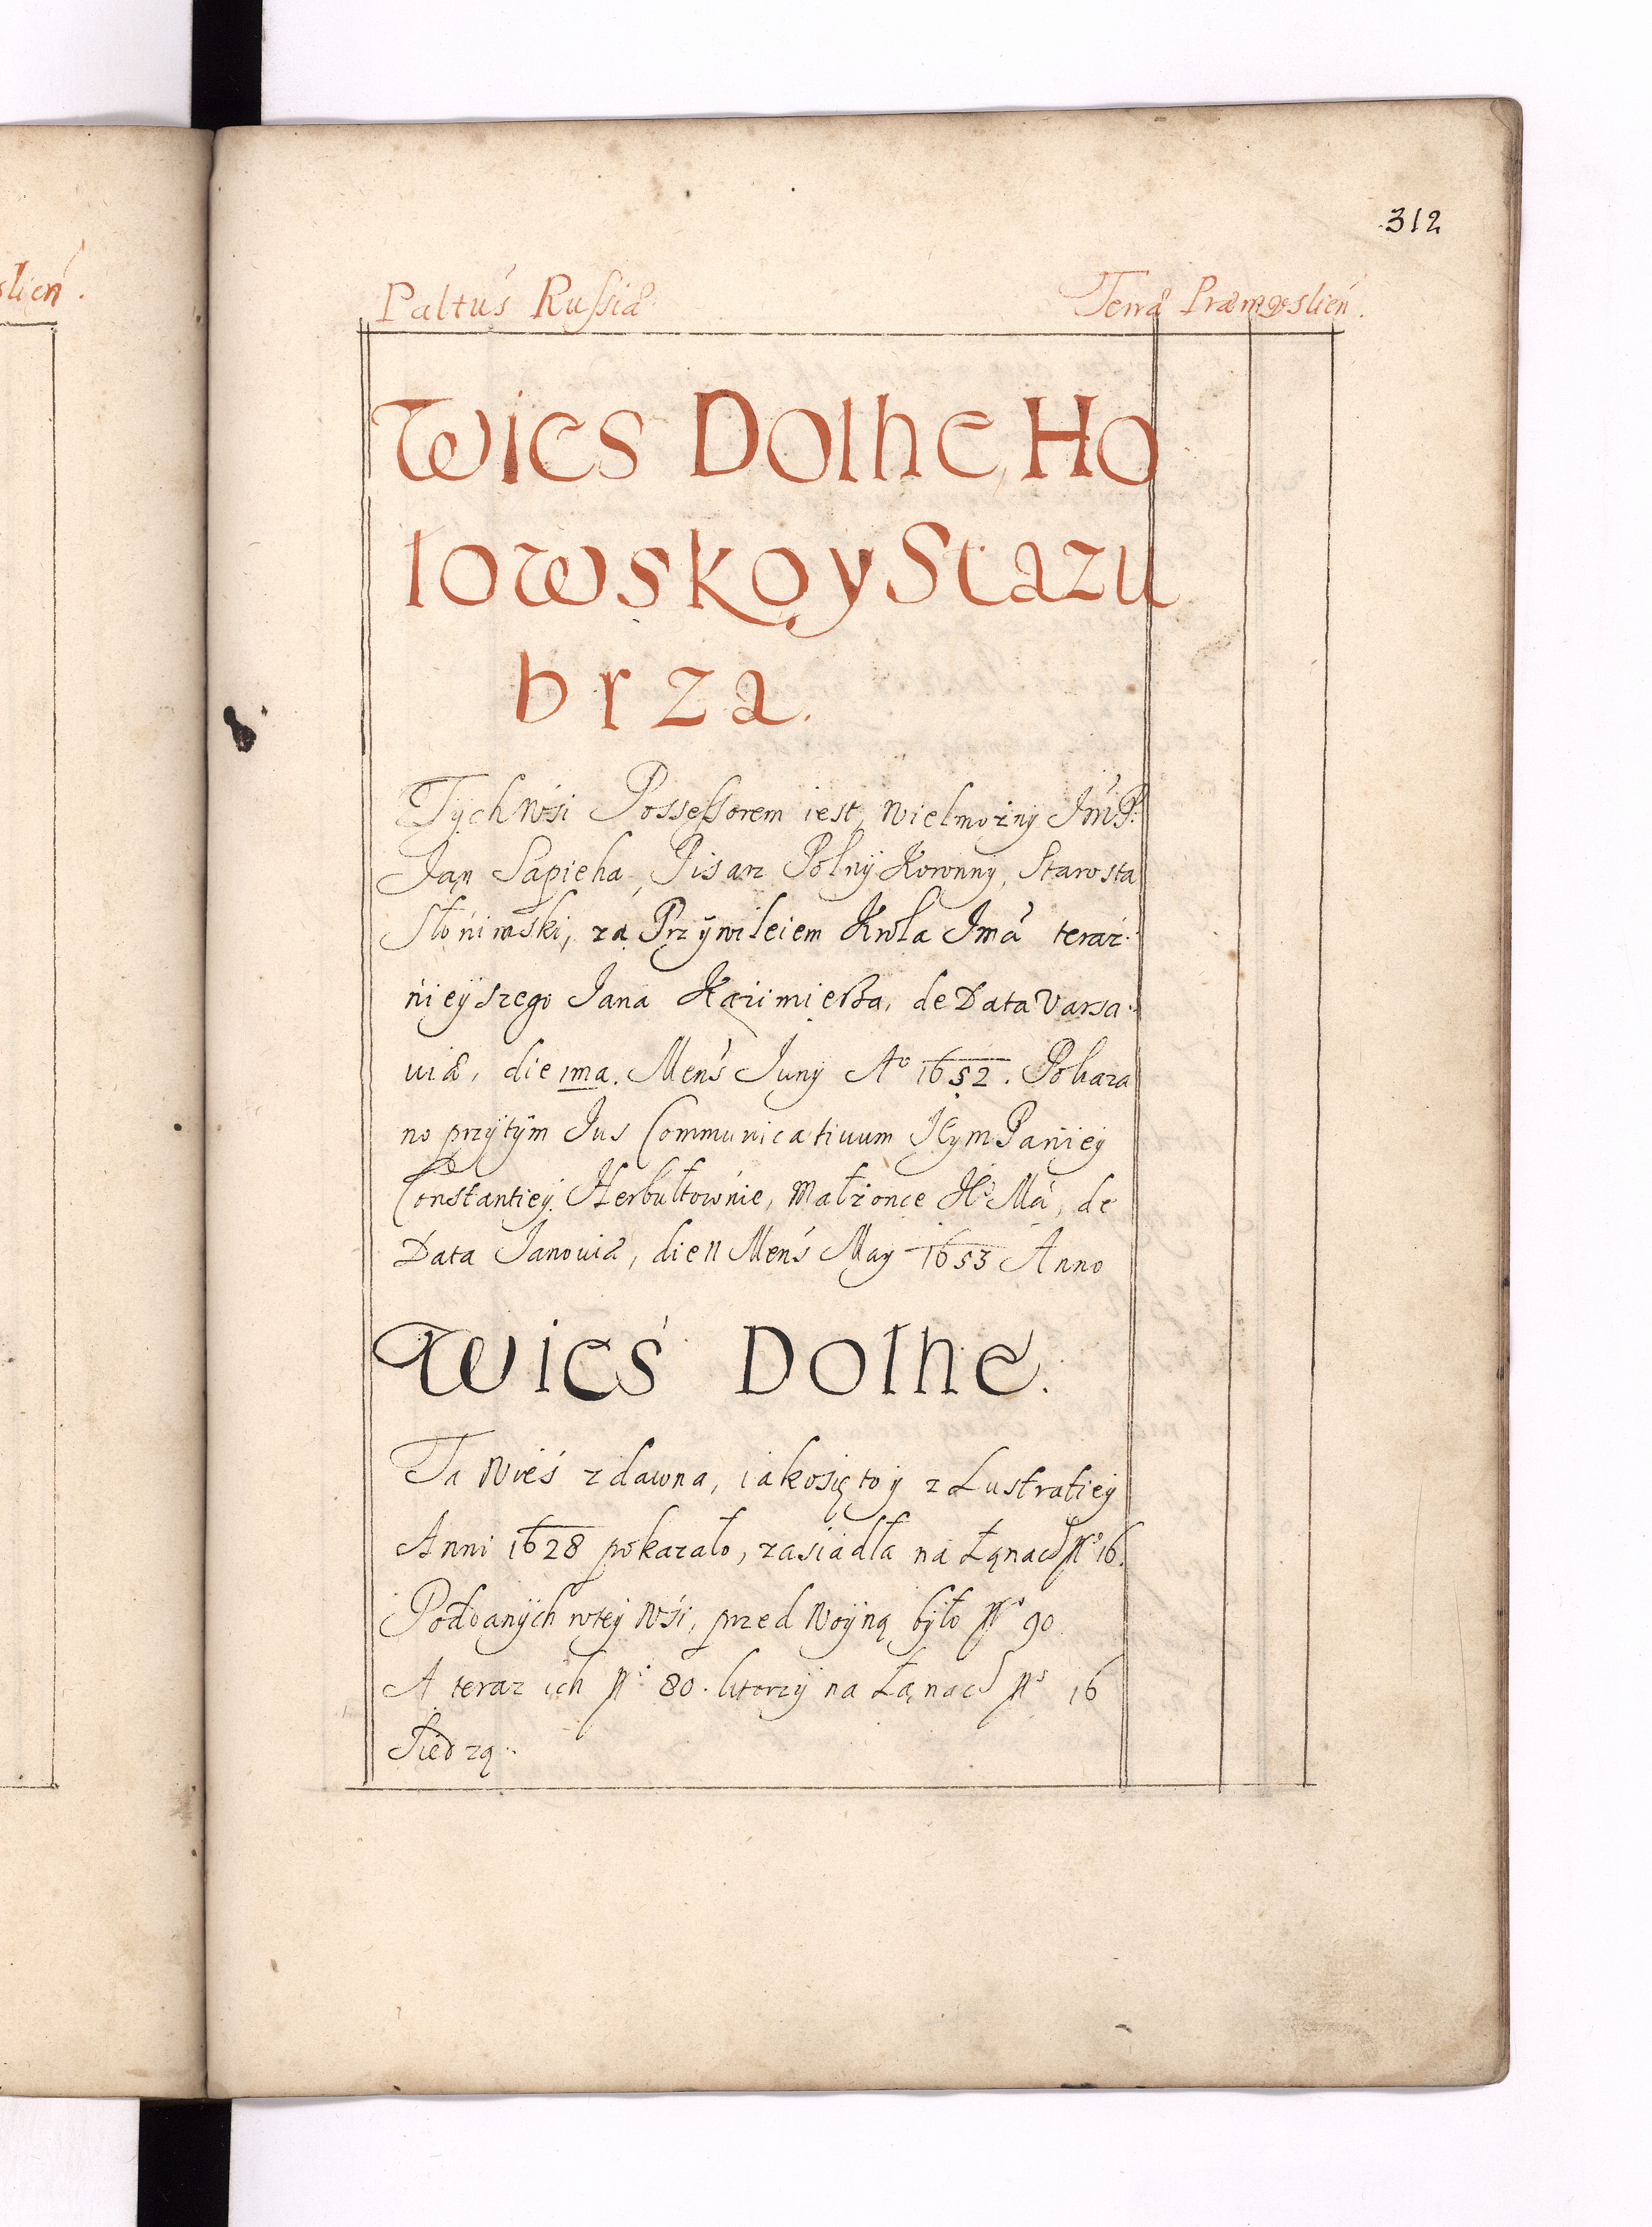 slień.
312
Paltuś Russiæ
Terræ Præmysslień.
Wies Dolhe, Ho
łowsko y Stazu
brza.
Tych Wśi Possessorem iest, Wielmożny JmP:
Jan Sapieha, Pisarz Polny Koronny, Starosta
Słonimski, zá Przywileiem Krola Jmći teraz:
nieyszego Jana Kazimierza, de Data Varsa:
uiæ, die 1ma. Menś Juny A° 1652. Pokaza
no przytym Jus Communicatiuum JeymPaniey
Constantiey Herbultownie, Małżonce J° Mći, de
Data Janouiæ, die 11 Menś May 1653 Anno
Wieś Dolhe.
Ta Wieś zdawna, iakosię to y z Lustratiey
Anni 1628 pokazało, zasiadła na Łanach N° 16.
Poddanych wtey Wśi, przed Woyną było N° 90
A teraz ich N° 80. ktorzy na Łanach N° 16
Siedzą.